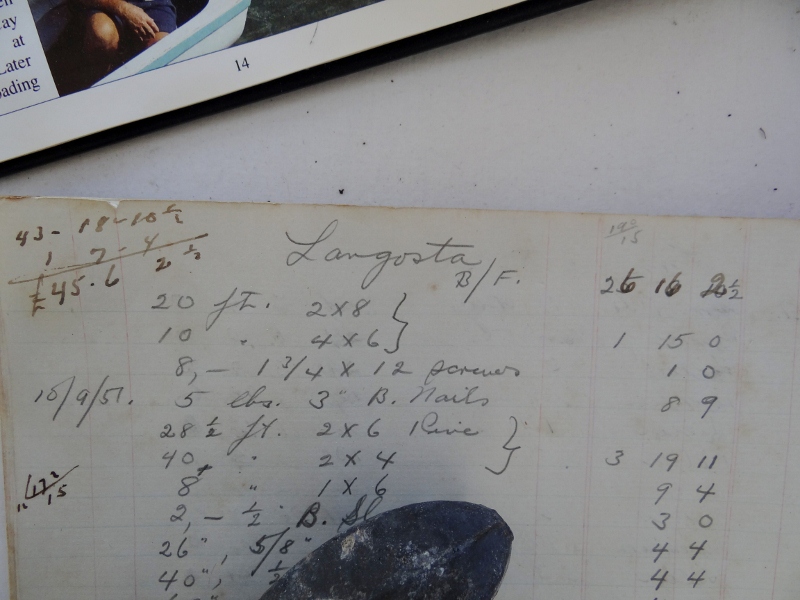 ay
at
Later
oading
14
43 - 18 - 10 1/2
1 7 - 4
£45. 6 2 1/2
Langosta
B/F. 26 16
20 ft. 2 x 8 }
10 " 4 x 6 } 1 15 0
8, - 1 3/4 x 12 screws 1 0
5 lbs. 3" B. Nails 8 9
28 1/2 ft. 2 x 6 }
40 " 2 x 4 } 3 19 11
8 " 1 x 6 9 4
2, - 1/2 B. 3 0
26", 5/8" 4 4
40", 4 4